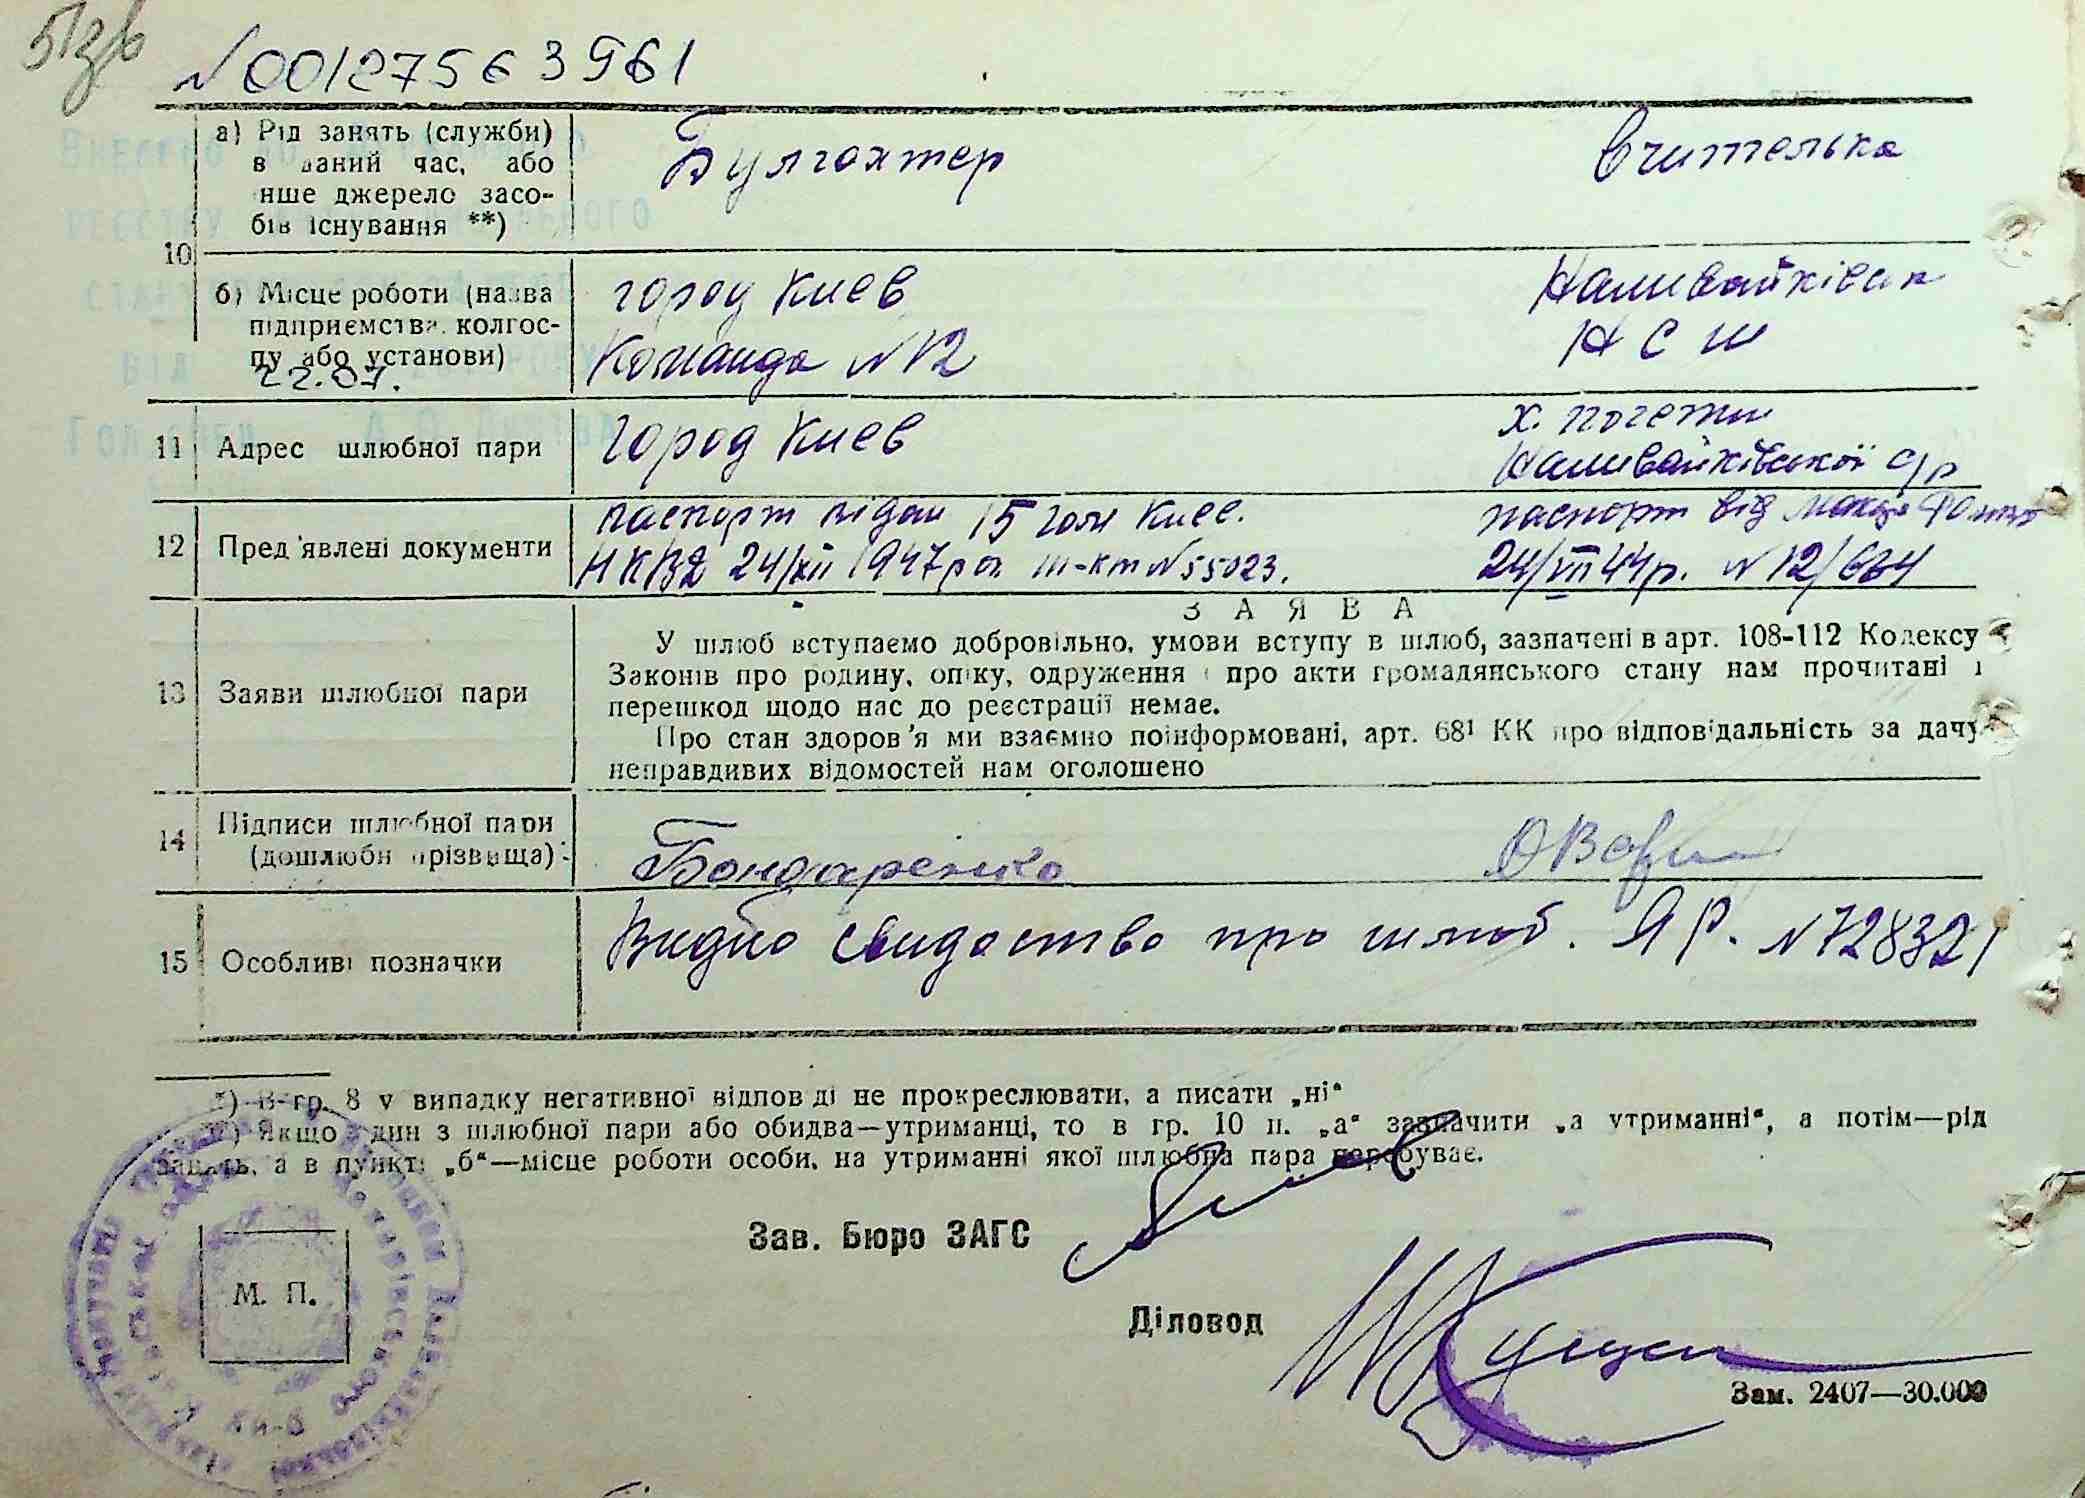 51зв
N00127563961
а) Рід занять (служби) Булгахтер Вчителька
в даний час, або
інше джерело засо-
бів існування **)
10
б) Місце роботи (назва город Киев Наливайківськ
підприємства, колгос- Команда N12 Н С Ш
пу або установи)
22.07.
11 Адрес шлюбної пари город Киев х.
Наливайківської с/р
12 Пред'явлені документи паспорт відан 15 Киев. паспорт від
НКВД 24/XII 1947 N55023. 24/VII 44р. N12/664
З А Я В А
13 Заяви шлюбної пари
У шлюб вступаємо добровільно, умови вступу в шлюб, зазначені в арт. 108-112 Кодексу
Законів про родину, опіку, одруження і про акти громадянського стану нам прочитані і
перешкод щодо нас до реєстрації немає.
Про стан здоров'я ми взаємно поінформовані, арт. 68¹ КК про відповідальність за дачу
неправдивих відомостей нам оголошено
14 Підписи шлюбної пари Бондаренко
(дошлюбні прізвища)
15 Особливі позначки Видно свидоство про шлюб. ЯР. N728321
*) В гр. 8 у випадку негативної відповіді не прокреслювати, а писати „ні“
**) Якщо один з шлюбної пари або обидва—утриманці, то в гр. 10 п. „а“ зазначити „а утриманні“, а потім—рід
занять, а в пункті „б“—місце роботи особи, на утриманні якої шлюбна пара перебуває.
Зав. Бюро ЗАГС
М. П.
Діловод
Зам. 2407—30.000